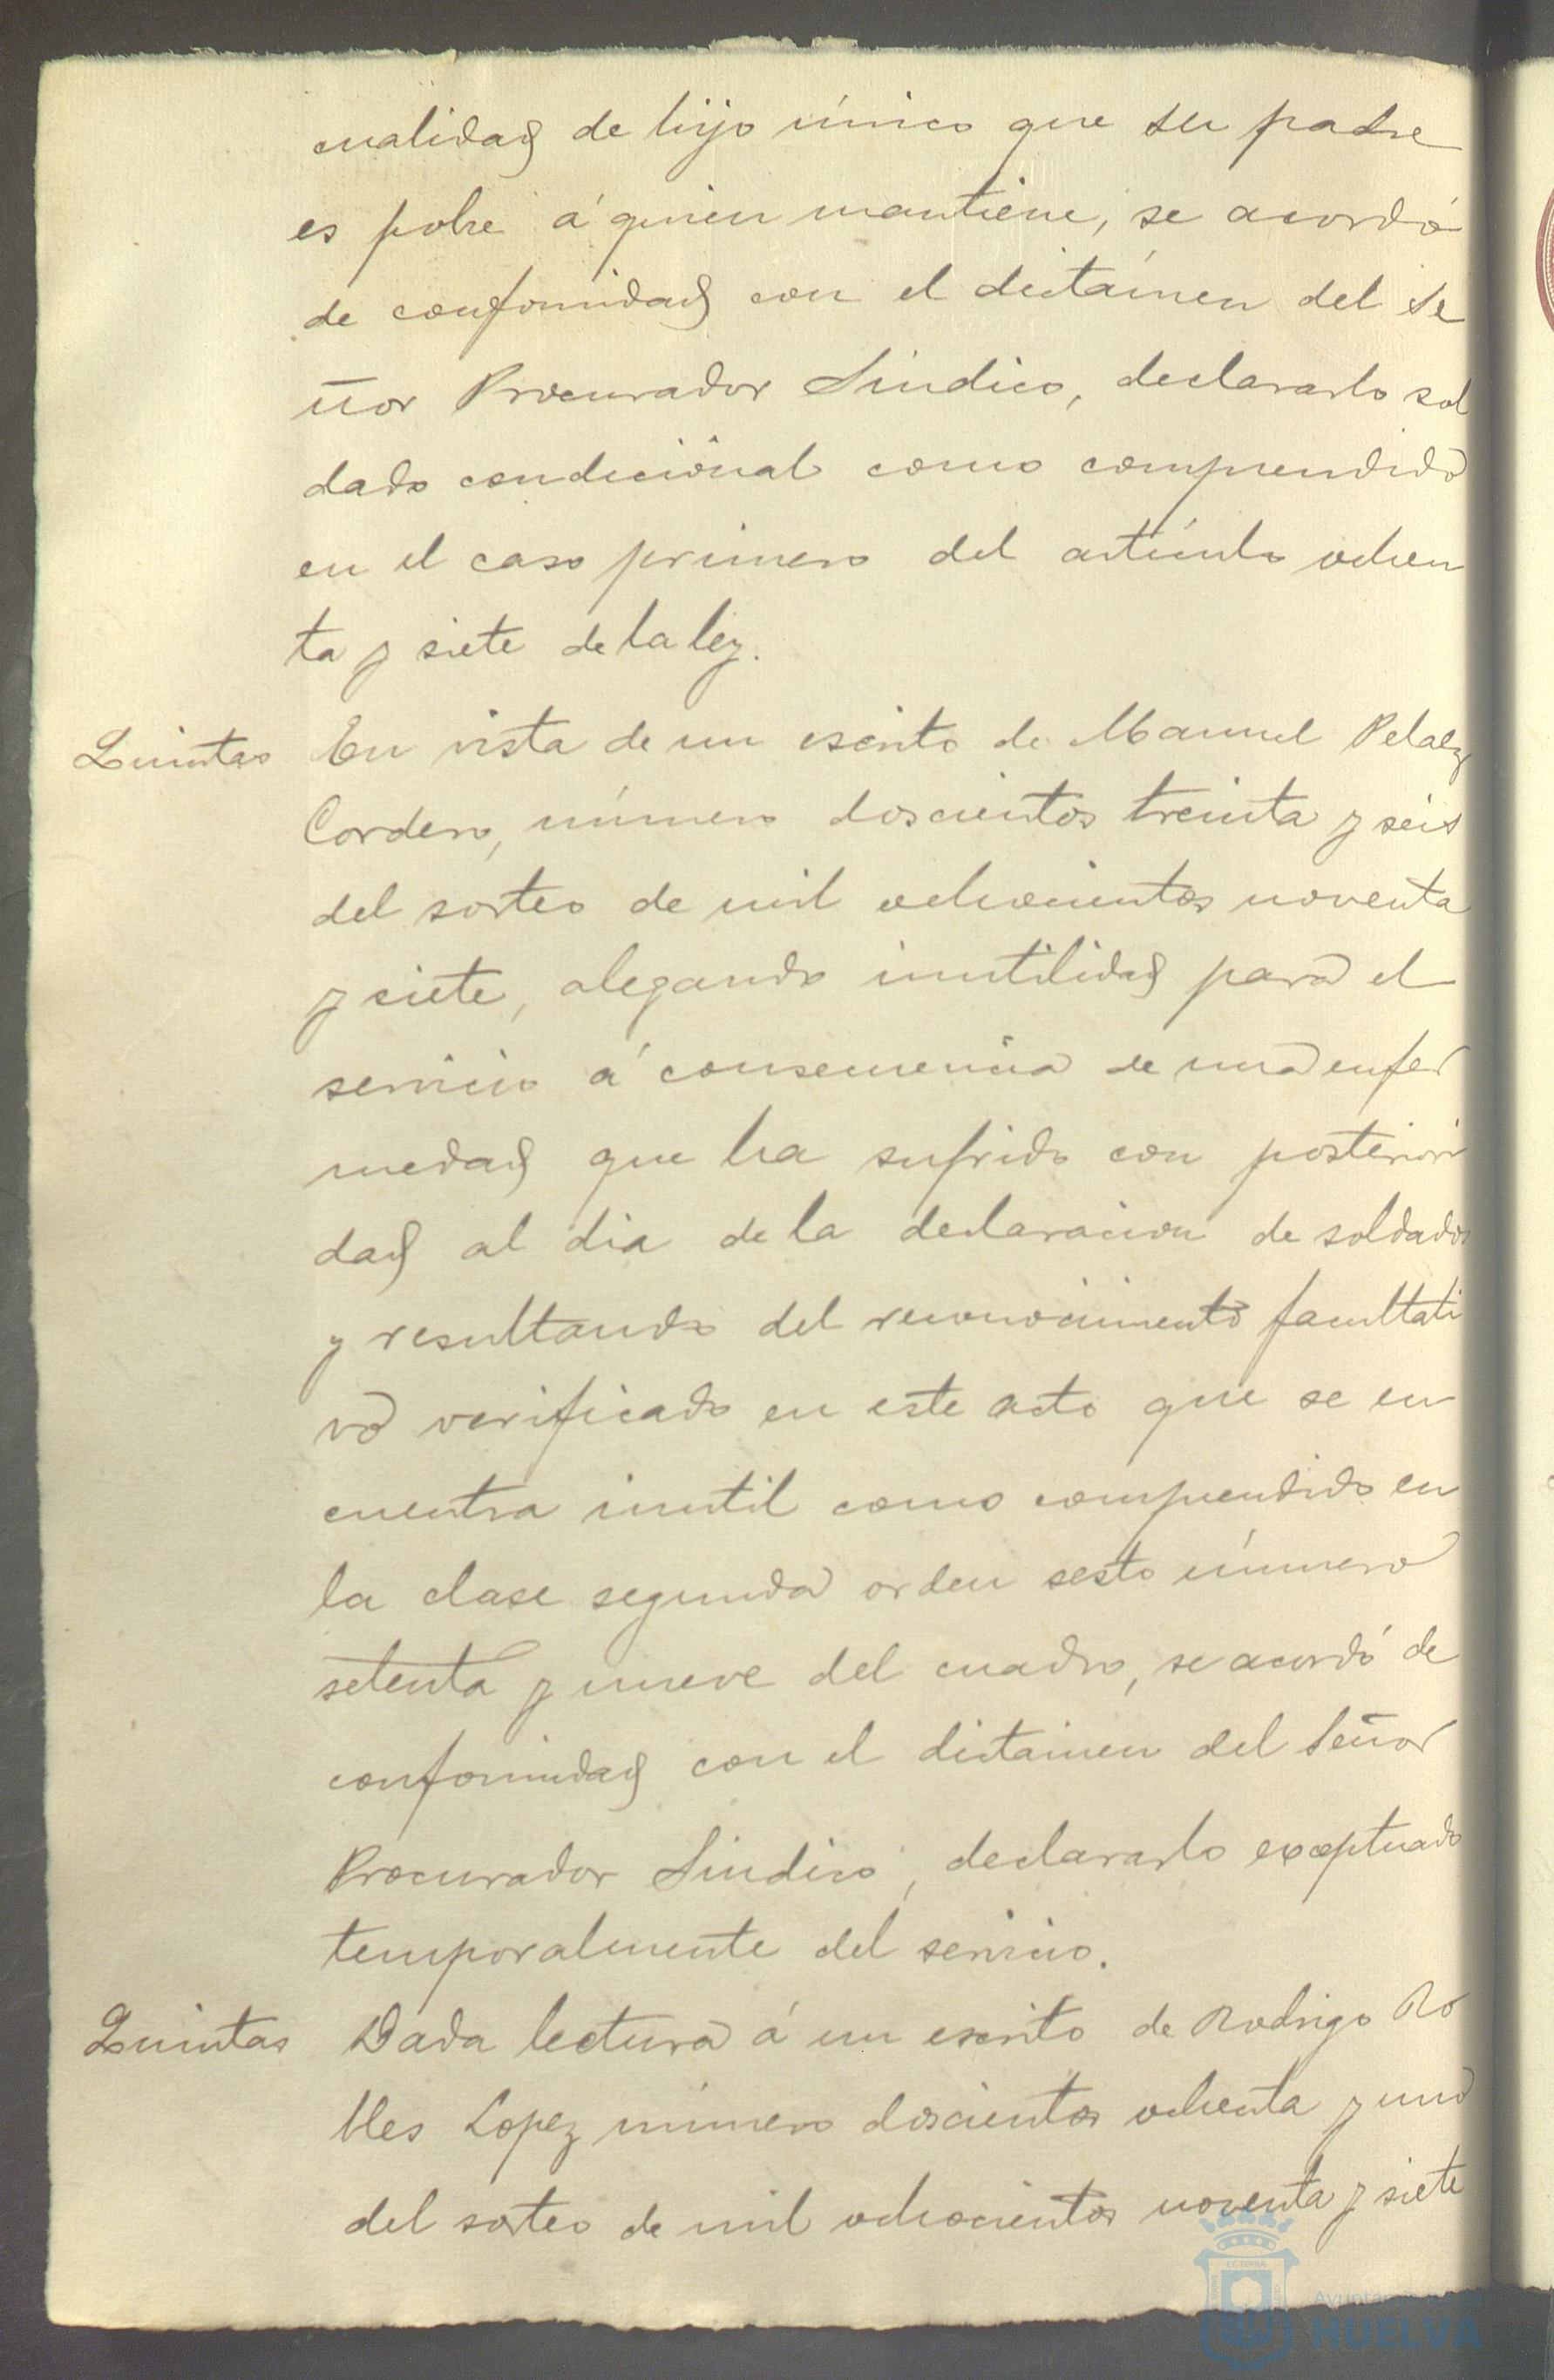 cualidad de hijo único que su padre
es pobre á quien mantiene, se acordó
de conformidad con el dictámen del Se
ñor Procurador Sindico, declararlo sol
dado condicional como comprendido
en el caso primero del artículo ochen
ta y siete de la ley.
Quintas En vista de un escrito de Manuel Pelaez
Cordero, número doscientos treinta y seis
del sorteo de mil ochocientos noventa
y siete, alegando inutilidad para el
servicio á consecuencia de una enfer
medad que ha sufrido con posteriori
dad al dia de la declaracion de soldados
y resultando del reconocimiento facultati
vo verificado en este acto que se en
cuentra inutil como comprendido en
la clase segunda orden sesto número
setenta y nueve del cuadro, se acordó de
conformidad con el dictamen del Señor
Procurador Sindico, declararlo exceptuado
temporalmente del servicio.
Quintas Dada lectura á un escrito de Rodrigo Ro
bles Lopez número doscientos ochenta y uno
del sorteo de mil ochocientos noventa y siete
HUELVA